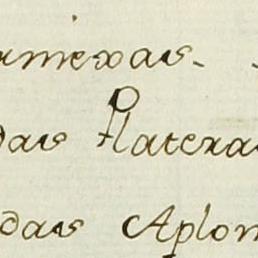 rmexas.
das Plateras
das Aplom